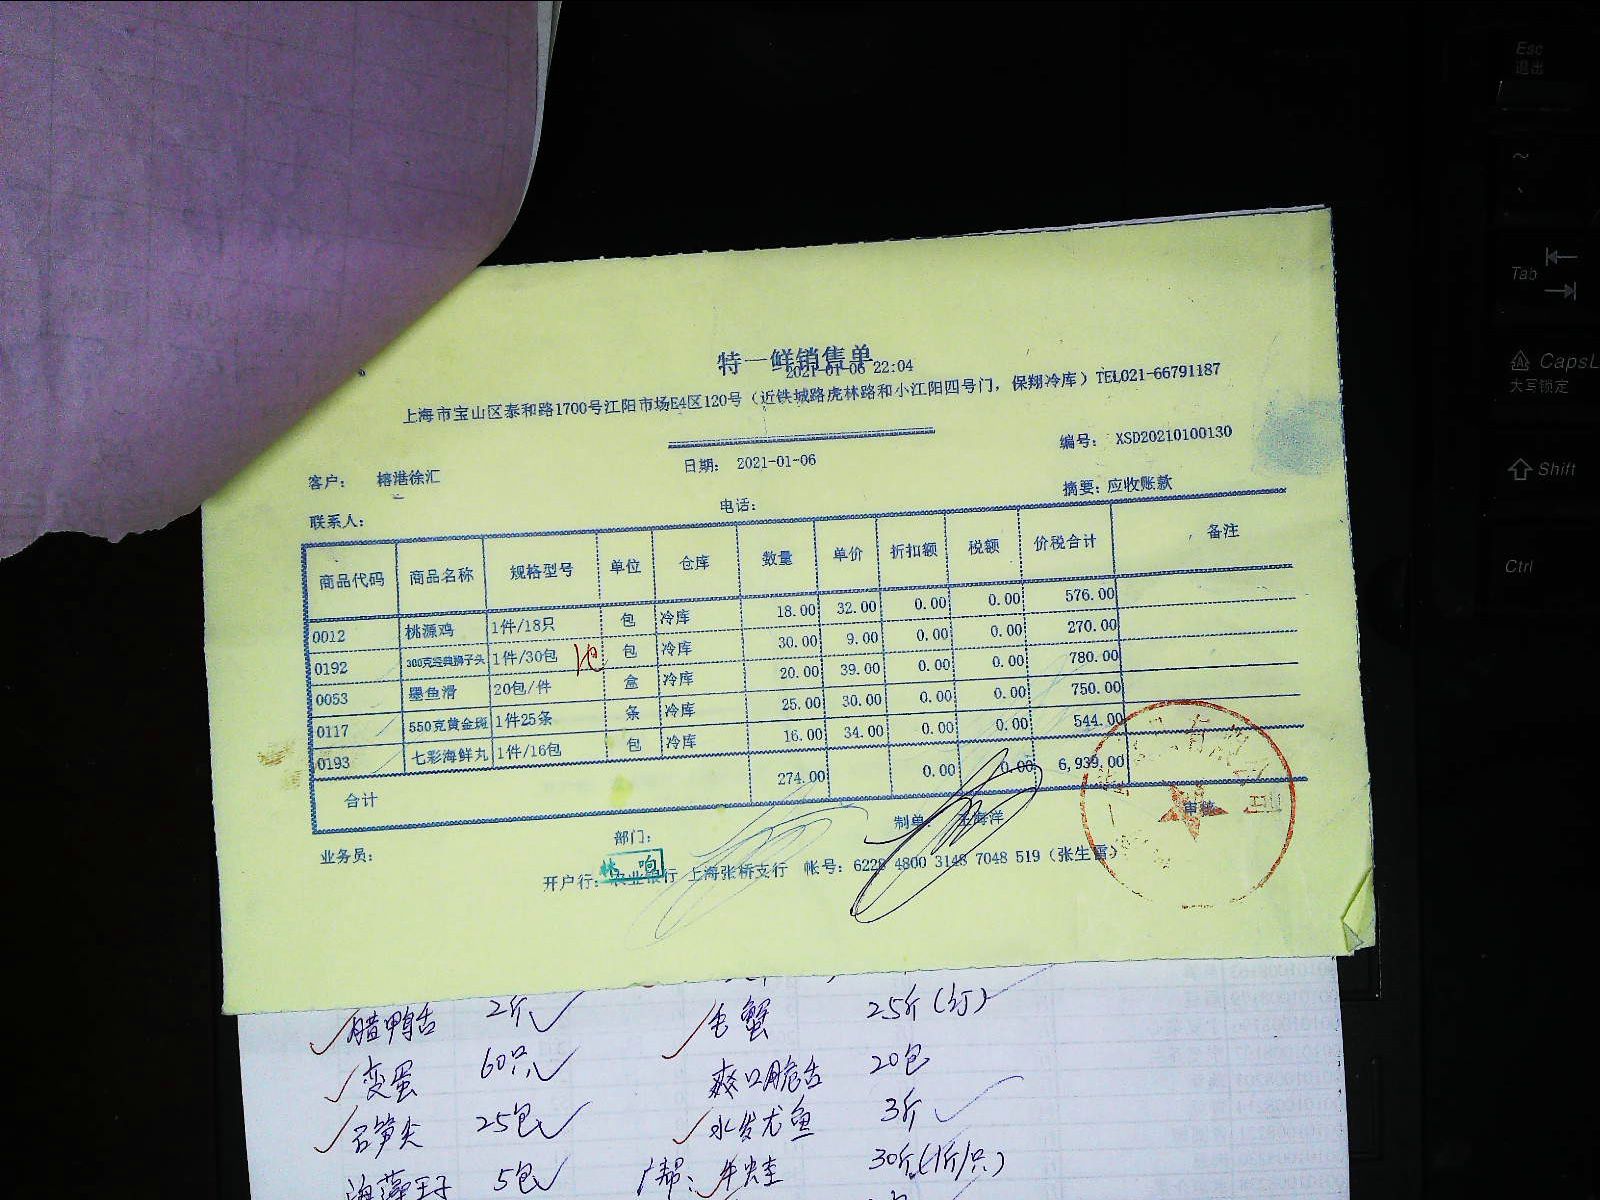 特一鲜销售单
2021-01-06 22:04
上海市宝山区泰和路1700号江阳市场E4区120号（近铁城路虎林路和小江阳四号门，保翔冷库）TEL021-66791187
编号： XSD20210100130
日期： 2021-01-06
客户： 榕港徐汇
摘要：应收账款
电话：
联系人：
商品代码 商品名称 规格型号 单位 仓库 数量 单价 折扣额 税额 价税合计 备注
0012 桃源鸡 1件/18只 包 冷库 18.00 32.00 0.00 0.00 576.00
0192 300克经典狮子头 1件/30包 包 冷库 30.00 9.00 0.00 0.00 270.00
0053 墨鱼滑 20包/件 盒 冷库 20.00 39.00 0.00 0.00 780.00
0117 550克黄金斑 1件25条 条 冷库 25.00 30.00 0.00 0.00 750.00
0193 七彩海鲜丸 1件/16包 包 冷库 16.00 34.00 0.00 0.00 544.00
合计 274.00 0.00 0.00 6,939.00
业务员： 部门： 制单： 海洋 审核
开户行：农业银行 上海张桥支行 帐号：6228 4800 3148 7048 519（张生雷）
腊鸭舌 2斤 毛蟹 25斤(订)
变蛋 60只 爽口脆舌 20包
石笋尖 25包 水发尤鱼 3斤
5包 牛蛙 30斤(1斤/只)
Esc
退出
Tab
CapsL
大写锁定
Shift
Ctrl